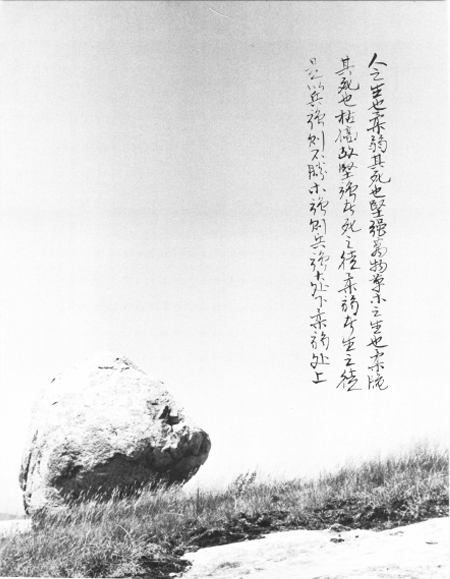 人之生也柔弱其死也堅強萬物草木之生也柔脆
其死也枯槁故堅強者死之徒柔弱者生之徒
是以兵強則不勝木強則兵強大处下柔弱处上